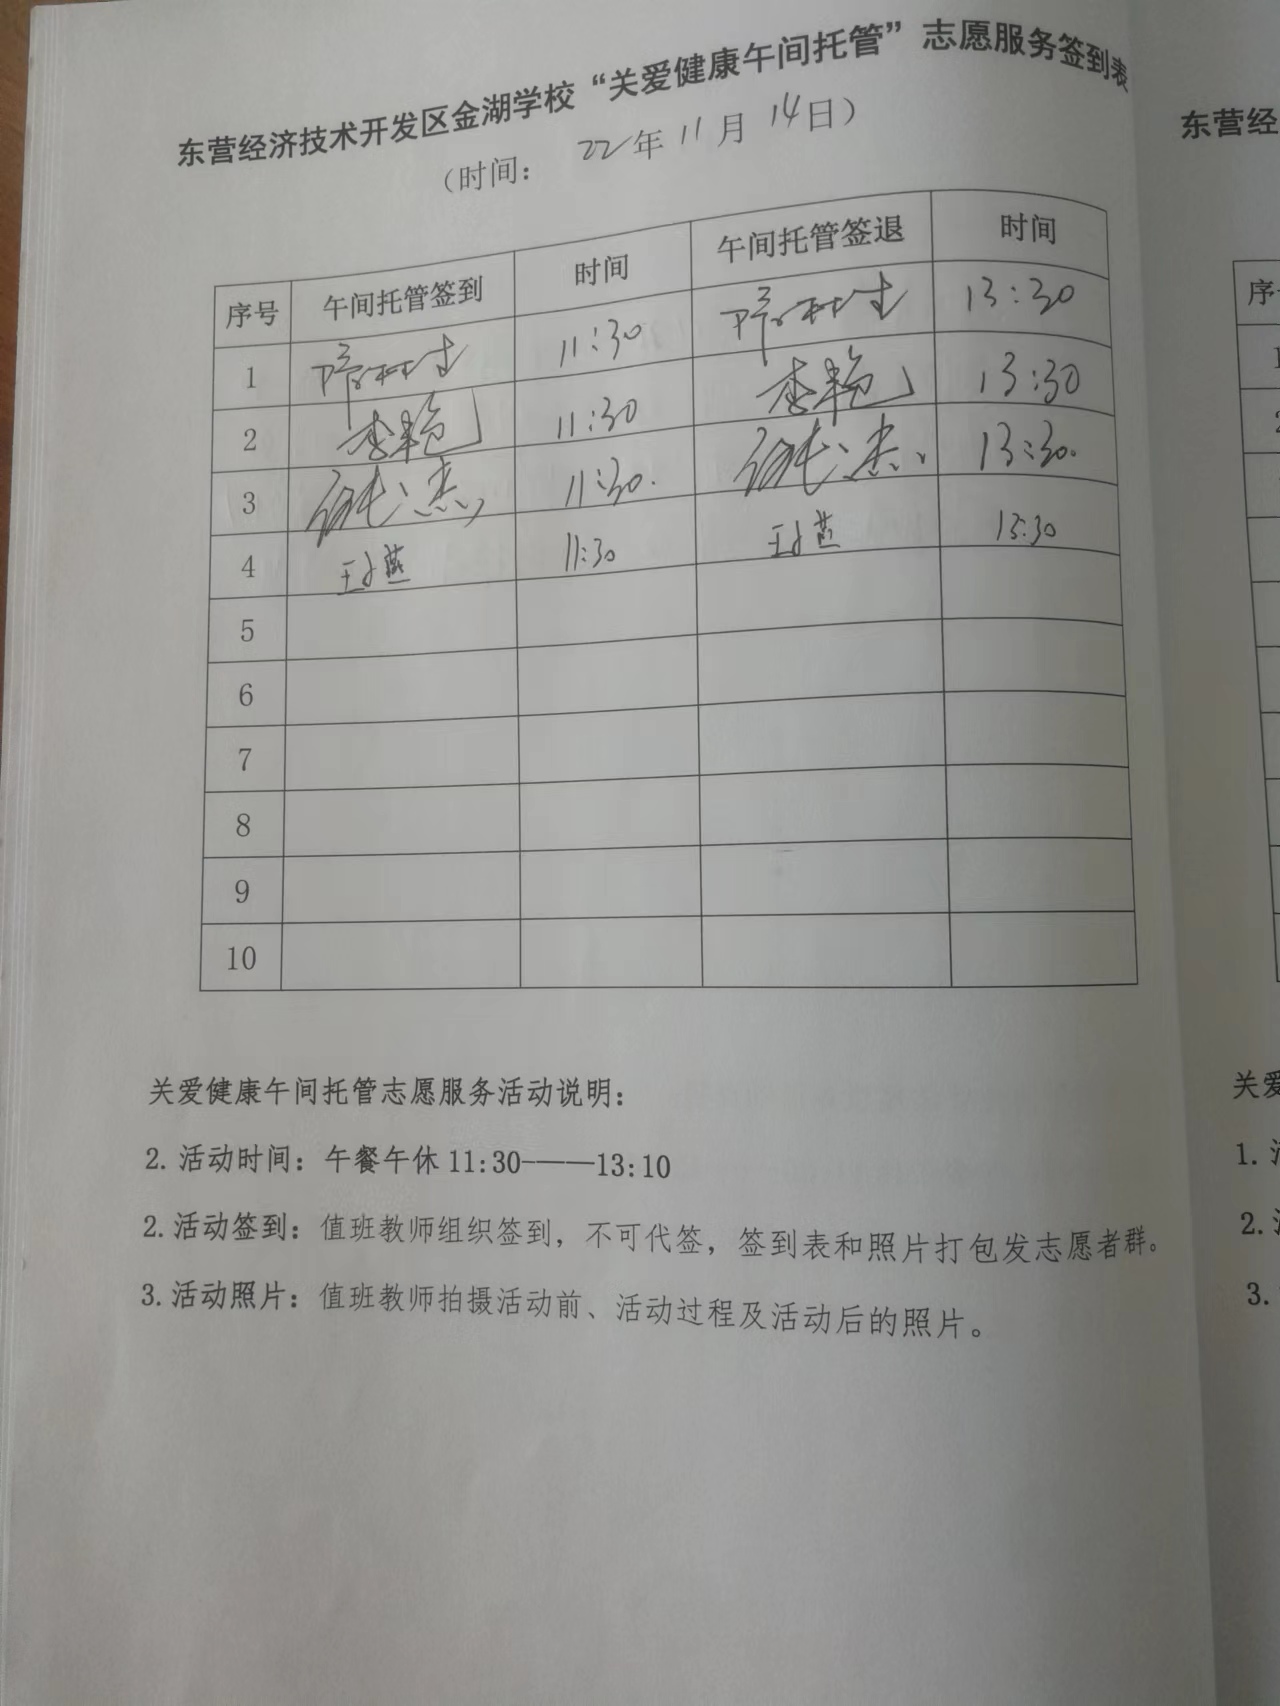 东营经济技术开发区金湖学校“关爱健康午间托管”志愿服务签到表
（时间： 22年11月14日）
序号 午间托管签到 时间 午间托管签退 时间
1 11:30 13:30
2 李艳 11:30 李艳 13:30
3 11:30. 13:30.
4 11:30 13:30
5
6
7
8
9
10
关爱健康午间托管志愿服务活动说明：
2. 活动时间：午餐午休 11:30——13:10
2. 活动签到：值班教师组织签到，不可代签，签到表和照片打包发志愿者群。
3. 活动照片：值班教师拍摄活动前、活动过程及活动后的照片。
东营经
序
关爱
1.
2.
3.